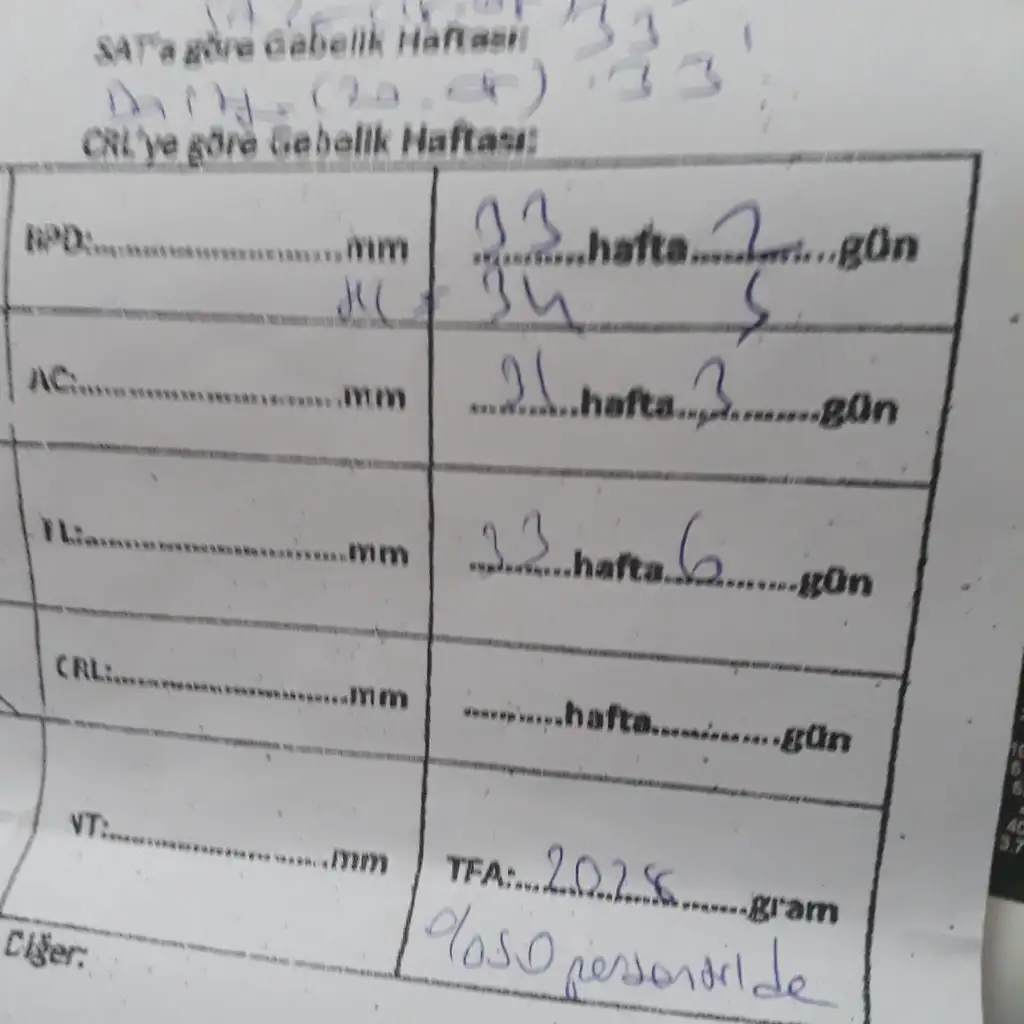 SAT'a göre Gebelik Haftası: 33
33
CRL'ye göre Gebelik Haftası:
BPD:..............................mm 33 hafta 2 gün
HC = 34 5
AC:..............................mm 31 hafta 3 gün
FL:..............................mm 33 hafta 6 gün
CRL:..............................mm ..........hafta..............gün
NT:..............................mm TFA: 2028 gram
%50 persentilde
Diğer: